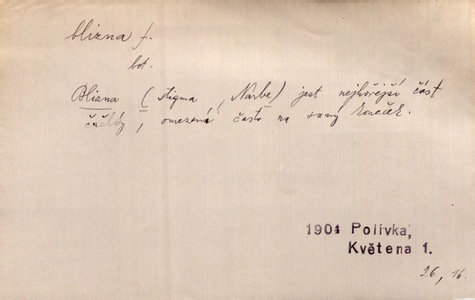 blizna f.
bot.
Blizna (stigma, Narbe) jest nejhořejší část
čnělky, omezená často na samý koneček.
1904 Polívka,
Květena 1.
26, 16.